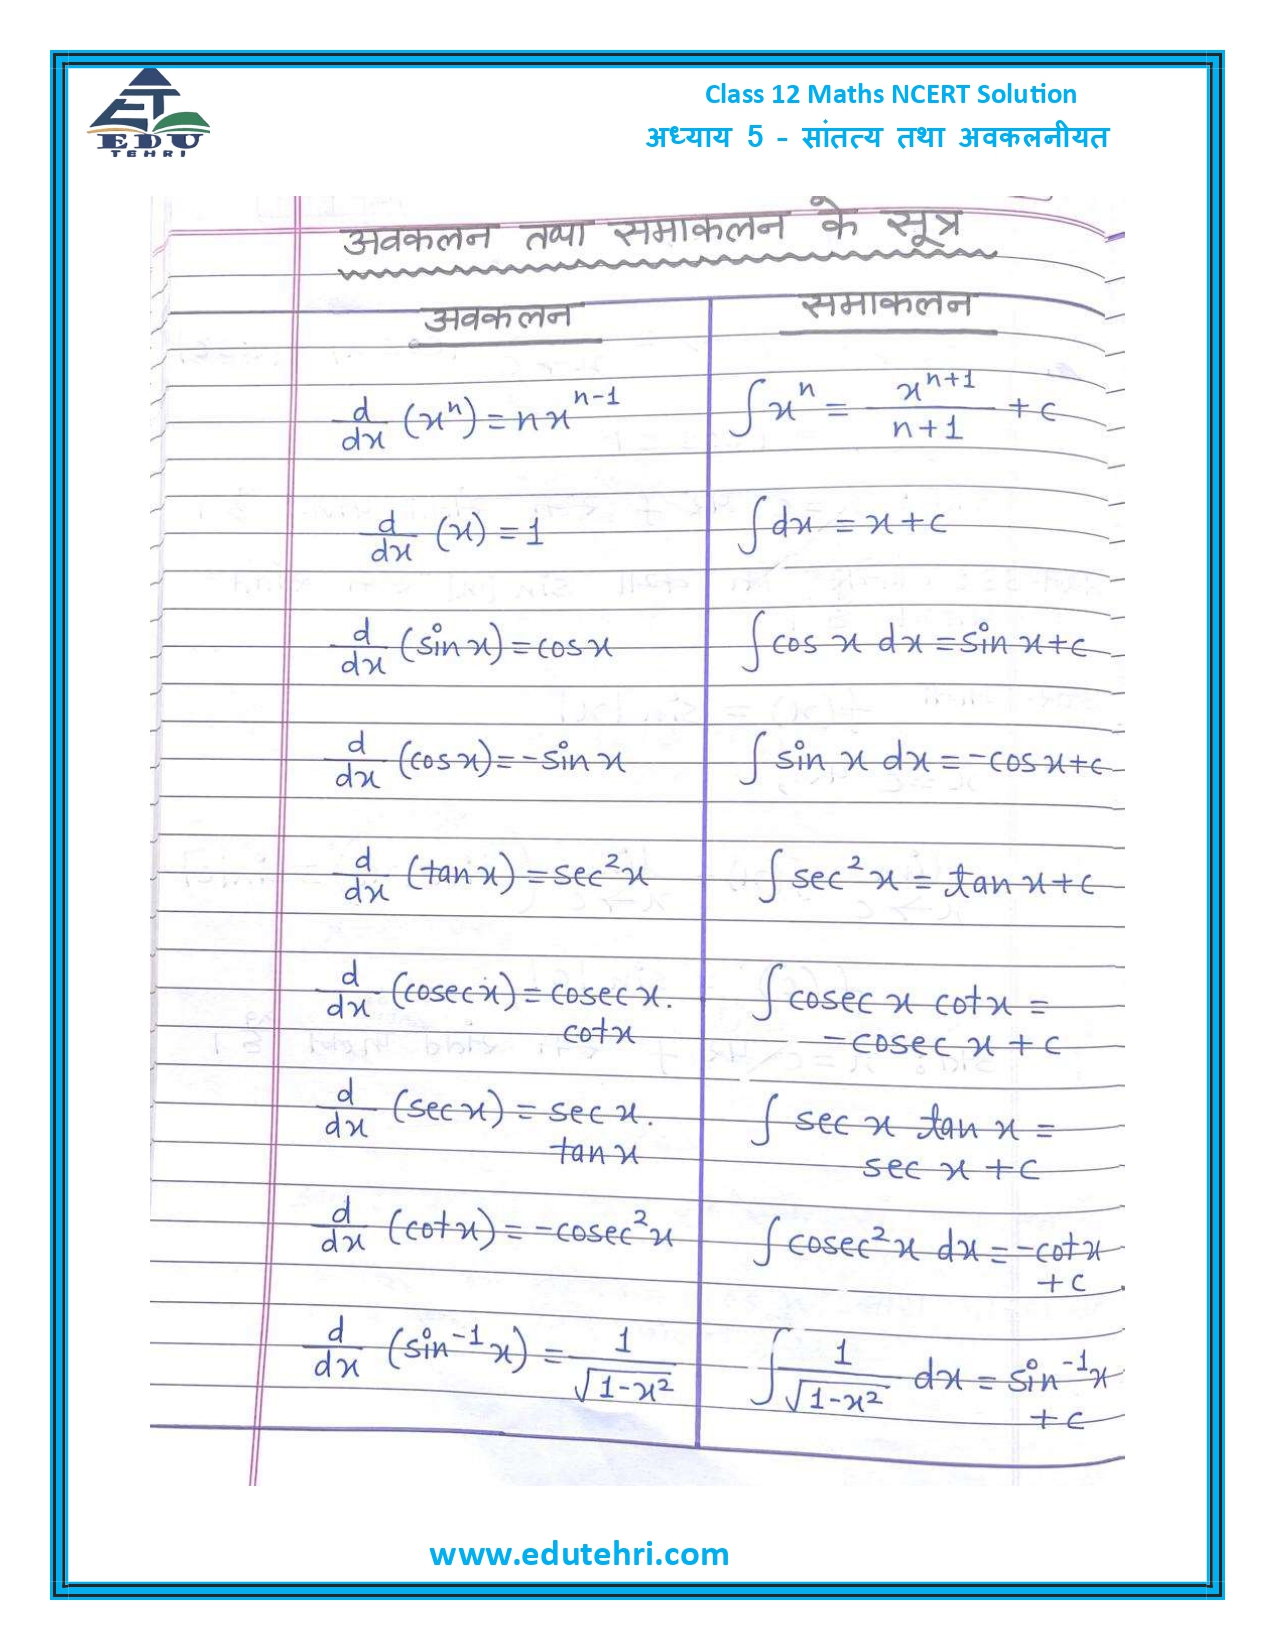 EDU
TEHRI
Class 12 Maths NCERT Solution
अध्याय 5 - सांतत्य तथा अवकलनीयत
अवकलन तथा समाकलन के सूत्र
अवकलन
समाकलन
d/dx (xⁿ) = nxⁿ⁻¹
∫xⁿ = xⁿ⁺¹/n+1 + c
d/dx (x) = 1
∫dx = x+c
d/dx (sin x) = cos x
∫cos x dx = sin x+c
d/dx (cos x) = -sin x
∫sin x dx = -cos x+c
d/dx (tan x) = sec²x
∫sec²x = tan x+c
d/dx (cosec x) = cosec x.
cot x
∫cosec x cot x =
-cosec x + c
d/dx (sec x) = sec x.
tan x
∫sec x tan x =
sec x + c
d/dx (cot x) = -cosec²x
∫cosec²x dx = -cot x
+ c
d/dx (sin⁻¹x) = 1/√1-x²
∫1/√1-x² dx = sin⁻¹x
+ c
www.edutehri.com